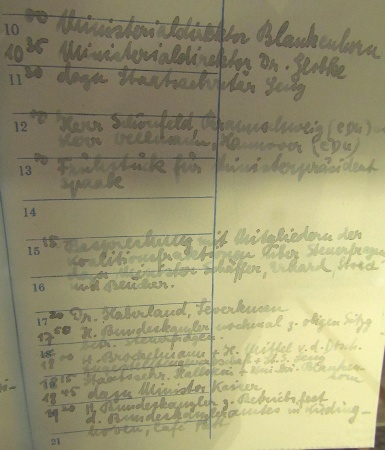 10 00 Ministerialdirektor Blankenhorn
10 35 Ministerialdirektor Dr. Globke
11 30 dazu Staatssekretär Lenz
12 Herr Schönfeld, Braunschweig (CDU)
Herr Cillemann, Hannover (CDU)
13 Frühstück für Ministerpräsident
Spaak
14
15 15 Besprechung mit Mitgliedern der
Koalitionsfraktionen über Steuerfragen
dazu Minister Schäffer, Erhard, Storch
16 und Blücher.
17 20 Dr. Haberland, Leverkusen
17 50 H. Bundeskanzler nochmal z. obigen Sitzg
betr. Steuerfragen.
18 00 H. Brochelmann + H. Mittel v. d.
St.S. Lenz
18 15 Staatssekr. Hallstein + Blanken-
horn
18 45 dazu Minister Kaiser
19 30 H. Bundeskanzler z. Betriebsfest
d. Bundeskanzleramtes in
Café
21